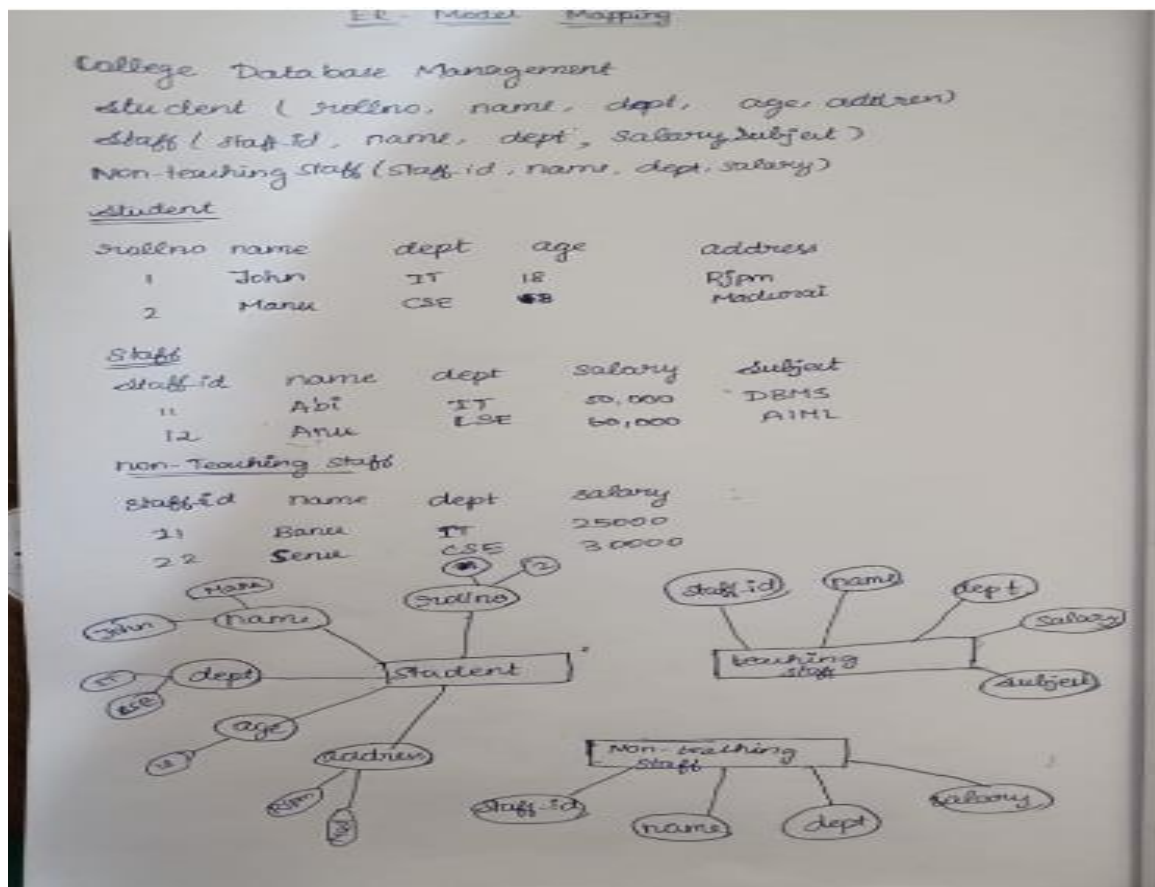 ER - Model Mapping
College Database Management
Student ( rollno, name, dept, age, address)
Staff ( staff-id, name, dept, salary, subject)
Non-teaching staff (staff-id, name, dept, salary)
Student
rollno name dept age address
1 John IT 18 Rjpm
2 Manu CSE 18 Madurai
Staff
staff-id name dept salary subject
11 Abi IT 50,000 DBMS
12 Anu CSE 60,000 AIML
non-Teaching staff
staff-id name dept salary
21 Banu IT 25000
22 Senu CSE 30000
Manu 2
John name rollno staff-id name dept salary
IT dept student teaching staff
CSE subject
age
18 address Non-teaching staff
Rjpm staff-id name dept salary